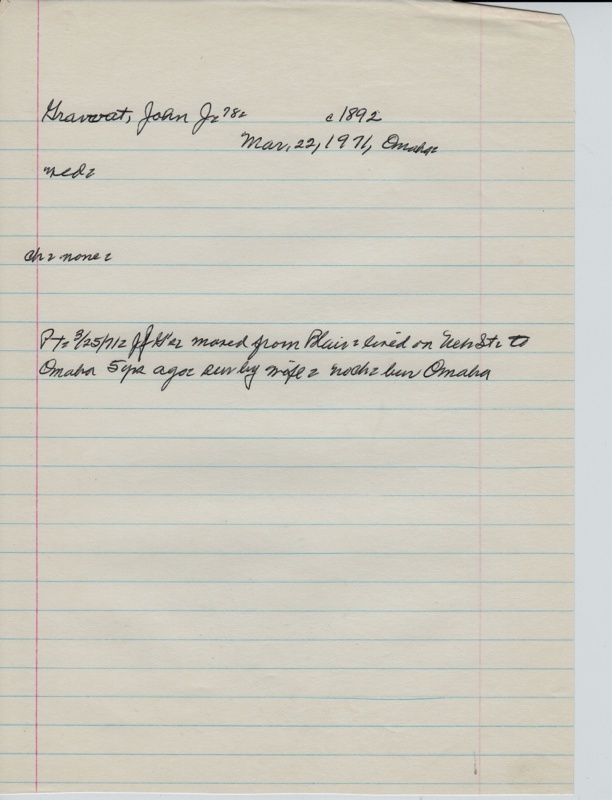 Gravvat, John J. 78. c1892
Mar. 22, 1971, Omaha.
med.
ch. none.
3/25/71. moved from Blair. lived on Neb St. to
Omaha 5 yrs ago. sur by wife. no ch. bur Omaha